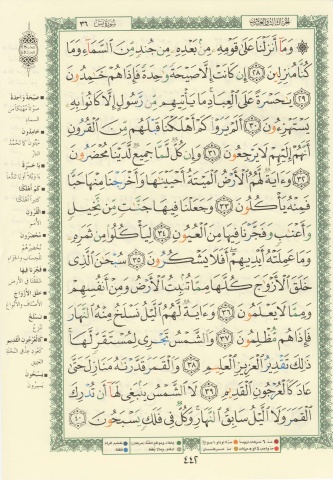 الجزء الثالث والعشرون
سورة يس
٣٦
وَمَآ أَنزَلْنَا عَلَىٰ قَوْمِهِۦ مِنۢ بَعْدِهِۦ مِن جُندٍ مِّنَ ٱلسَّمَآءِ وَمَا
كُنَّا مُنزِلِينَ ٢٨ إِن كَانَتْ إِلَّا صَيْحَةً وَٰحِدَةً فَإِذَا هُمْ خَٰمِدُونَ
٢٩ يَٰحَسْرَةً عَلَى ٱلْعِبَادِ مَا يَأْتِيهِم مِّن رَّسُولٍ إِلَّا كَانُوا۟ بِهِۦ
يَسْتَهْزِءُونَ ٣٠ أَلَمْ يَرَوْا۟ كَمْ أَهْلَكْنَا قَبْلَهُم مِّنَ ٱلْقُرُونِ
أَنَّهُمْ إِلَيْهِمْ لَا يَرْجِعُونَ ٣١ وَإِن كُلٌّ لَّمَّا جَمِيعٌ لَّدَيْنَا مُحْضَرُونَ
٣٢ وَءَايَةٌ لَّهُمُ ٱلْأَرْضُ ٱلْمَيْتَةُ أَحْيَيْنَٰهَا وَأَخْرَجْنَا مِنْهَا حَبًّا
فَمِنْهُ يَأْكُلُونَ ٣٣ وَجَعَلْنَا فِيهَا جَنَّٰتٍ مِّن نَّخِيلٍ
وَأَعْنَٰبٍ وَفَجَّرْنَا فِيهَا مِنَ ٱلْعُيُونِ ٣٤ لِيَأْكُلُوا۟ مِن ثَمَرِهِۦ
وَمَا عَمِلَتْهُ أَيْدِيهِمْ أَفَلَا يَشْكُرُونَ ٣٥ سُبْحَٰنَ ٱلَّذِى
خَلَقَ ٱلْأَزْوَٰجَ كُلَّهَا مِمَّا تُنۢبِتُ ٱلْأَرْضُ وَمِنْ أَنفُسِهِمْ
وَمِمَّا لَا يَعْلَمُونَ ٣٦ وَءَايَةٌ لَّهُمُ ٱلَّيْلُ نَسْلَخُ مِنْهُ ٱلنَّهَارَ
فَإِذَا هُم مُّظْلِمُونَ ٣٧ وَٱلشَّمْسُ تَجْرِى لِمُسْتَقَرٍّ لَّهَا
ذَٰلِكَ تَقْدِيرُ ٱلْعَزِيزِ ٱلْعَلِيمِ ٣٨ وَٱلْقَمَرَ قَدَّرْنَٰهُ مَنَازِلَ حَتَّىٰ
عَادَ كَٱلْعُرْجُونِ ٱلْقَدِيمِ ٣٩ لَا ٱلشَّمْسُ يَنۢبَغِى لَهَآ أَن تُدْرِكَ
ٱلْقَمَرَ وَلَا ٱلَّيْلُ سَابِقُ ٱلنَّهَارِ وَكُلٌّ فِى فَلَكٍ يَسْبَحُونَ ٤٠
صيحة واحدة
خامدون
يا حسرة
كم أهلكنا
القرون
محضرون
فجرنا فيها
خلق الأزواج
نسلخ
كالعرجون القديم
يسبحون
يسيرون
٤٤٢